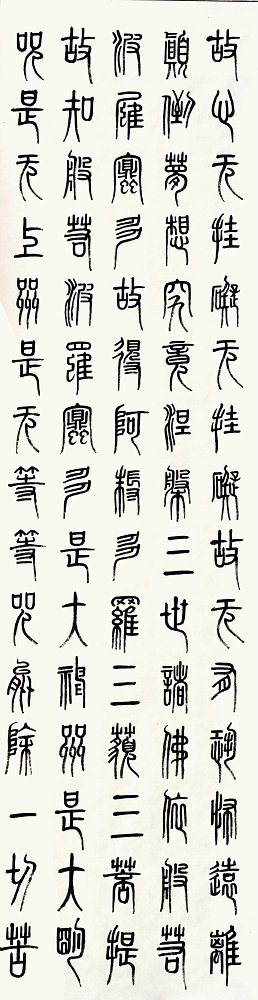 故心无挂礙无挂礙故无有恐怖遠離
顛倒夢想究竟涅槃三世諸佛依般若
波羅蜜多故得阿耨多羅三藐三菩提
故知般若波羅蜜多是大神咒是大明
咒是无上咒是无等等咒能除一切苦